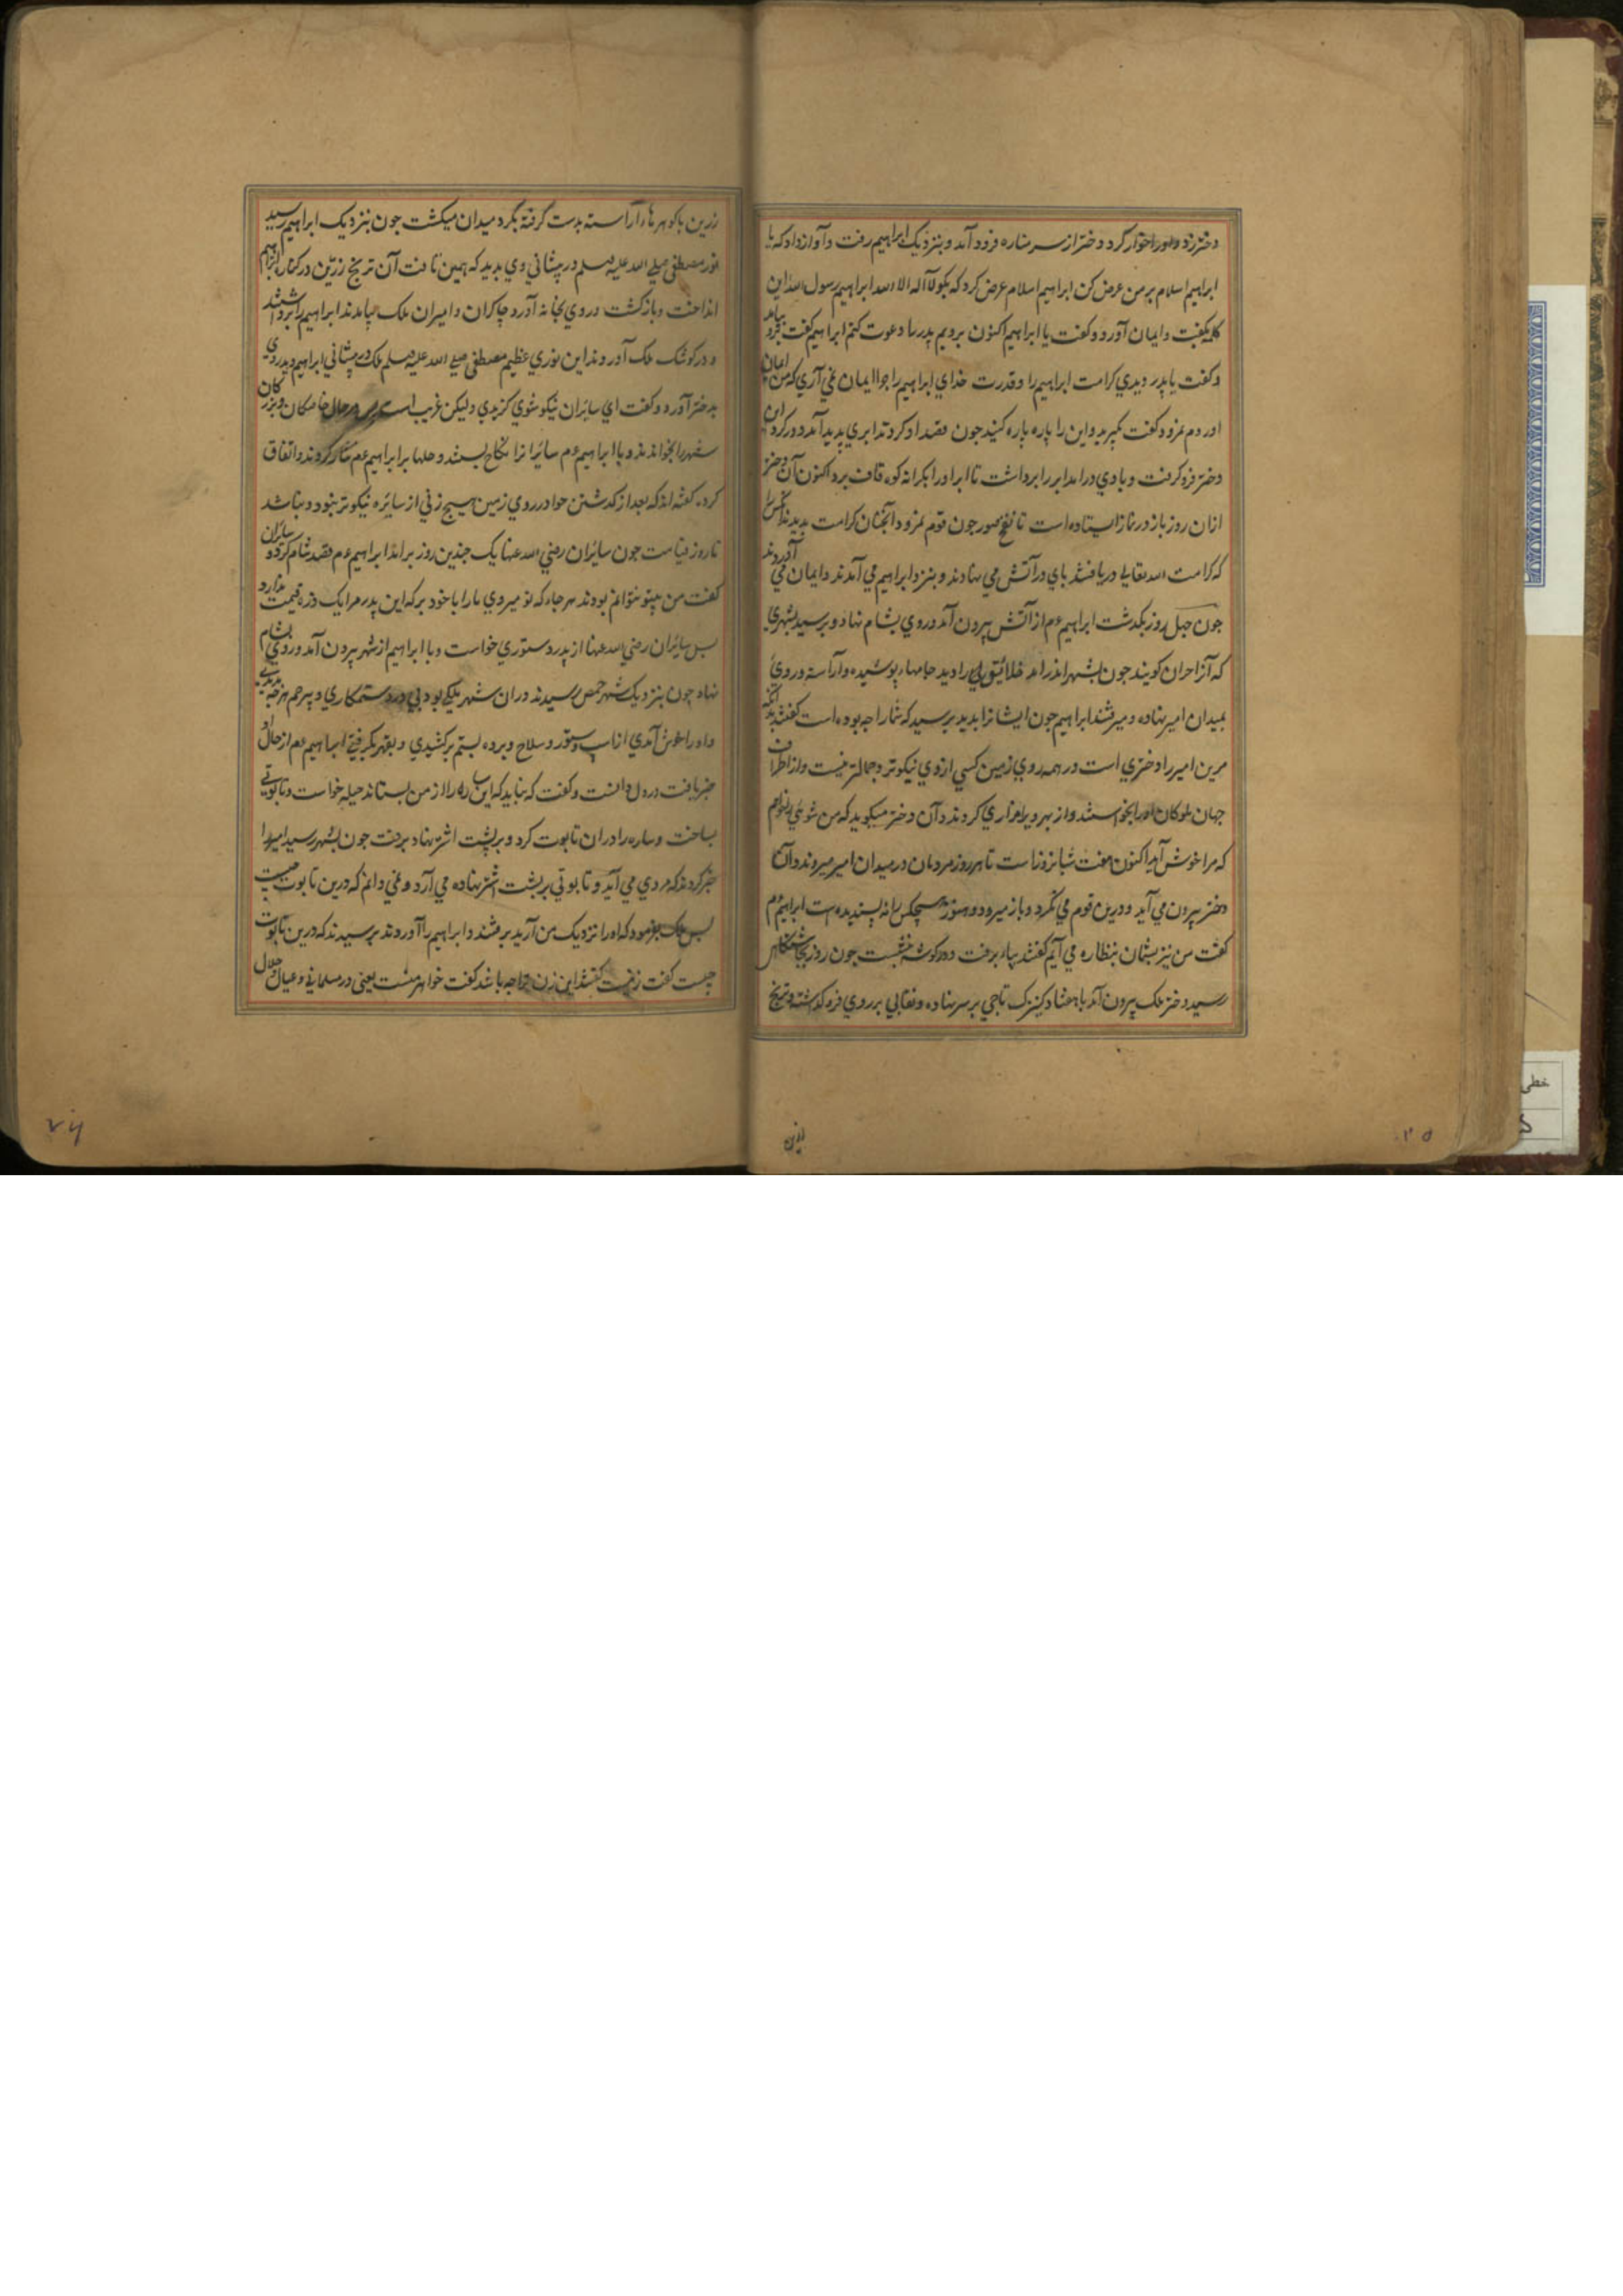 دختر زد و او را خوار کرد دختر از سر مناره فرود آمد و بنزدیک ابراهیم رفت و آواز داد که یا
ابراهیم اسلام بر من عرض کن ابراهیم اسلام عرض کرد که بکو لا اله الا الله ابراهیم رسول الله این
کلمه بکفت و ایمان آورد و کفت یا ابراهیم اکنون برویم پدر را دعوت کنم ابراهیم کفت برو بیامد
و کفت یا پدر دیدی کرامت ابراهیم را و قدرت خدای ابراهیم را جرا ایمان نمی آری که من ایمان
اوردم نمرود کفت بکیرید و این را پاره پاره کنید جون قصد او کردند ابری پدید آمد و در کرد آن
دختر فرو کرفت و بادی درامد ابر را برداشت تا ابر او را بکرانه کوه قاف برد اکنون آن دختر
ازان روز باز در نماز ایستاده است تا نفخ صور جون قوم نمرود آنجنان کرامت بدیدند هر کس را
که کرامت الله تعالی دریافتند پای در آتش می نهادند و بنزد ابراهیم می آمدند و ایمان می آوردند
جون جهل روز بکذشت ابراهیم عم از آتش بیرون آمد و روی بشام نهاد و برسید بشهری
که آنرا حران کویند جون بشهر اندر امد خلائیق را دید جامهاء پوشیده و آراسته و روی
بمیدان امیر نهاده و میرفتند ابراهیم جون ایشانرا بدید برسید که شما را جه بوده است کفتند بدانکه
مرین امیر را دختری است در همه روی زمین کسی ازوی نیکوتر و جمالتر نیست و از اطراف
جهان ملوکان او را بخواستند و از بهر وی زاری کردند و آن دختر میکوید که من شوئی را خواهم
که مرا خوش آید اکنون هفت شبانروز است تا هر روز مردمان در میدان امیر میروند و آن
دختر بیرون می آید و درین قوم می نکرد و باز میرود و هنوز هیچکس را نه پسندیده است ابراهیم عم
کفت من نیز بشمان بنظاره می آیم کفتند بیاء برفت و در کوشه بنشست جون روز بجاشتکاه
رسید دختر ملک بیرون آمد با هفتاد کنیزک تاجی بر سر نهاده و نقابی بر روی فرو کذاشته و ترنج
زرین
زرین با کوهرهاء آراسته بدست کرفته بکرد میدان میکشت جون بنزدیک ابراهیم رسید
نور مصطفی صلی الله علیه وسلم در پیشانی وی بدید که همین تافت آن ترنج زرین در کنار ابراهیم
انداخت و باز کشت و روی بخانه آورد چاکران و امیران ملک بیامدند ابراهیم را برداشتند
و در کوشک ملک آوردند این نوری عظیم مصطفی صلی الله علیه وسلم ملک در پیشانی ابراهیم دید روی
بدختر آورد و کفت ای سائران نیکو شوی کزیدی ولیکن غریب است پس در حال خاصکان و بزرکان
شهر را بخواندند و با ابراهیم عم سائرانرا نکاح بستند و حلها بر ابراهیم عم نثار کردند و اتفاق
کرد کفته اند که بعد از کذشتن حوا در روی زمین هیچ زنی از سایره نیکوتر نبود و نباشد
تا روز قیامت جون سائران رضی الله عنها یک چندین روز برامد ابراهیم عم قصد شام کرد و سایران
کفت من بیتو نتوانم بودند هر جاء که تو میروی ما را با خود بر که این پدر مرا یک ذره قیمت ندارد
پس سایران رضی الله عنها از پدر دستوری خواست و با ابراهیم از شهر بیرون آمد و روی بشام
نهاد چون بنزدیک شهر حمص رسیدند دران شهر ملکی بودی در ستمکاری و بیرحم هر جه بدیدی
و او را خوش آمدی از اسپ و ستور و سلاح و برده بستم برکشیدی و بقهر بکرفتی ابراهیم عم از حال او
خبر یافت در دل دانست و کفت که نباید که این ساره را از من بستاند حیله خواست و تابوتی
بساخت و ساره را دران تابوت کرد و بر پشت اشتر نهاد برفت جون بشهر رسید امیر را
خبر کردند که مردی می آید و تابوتی بر پشت اشتر نهاده می آرد و نمی دانم که درین تابوت چیست
پس ملک بفرمود که او را نزدیک من آرید برفتند و ابراهیم را آوردند پرسیدند که درین تابوت
چیست کفت زنیست کفتند این زن ترا جه باشد کفت خواهر منست یعنی در مسلمانی و عیال حلال
۲۵
۲۶
خطی